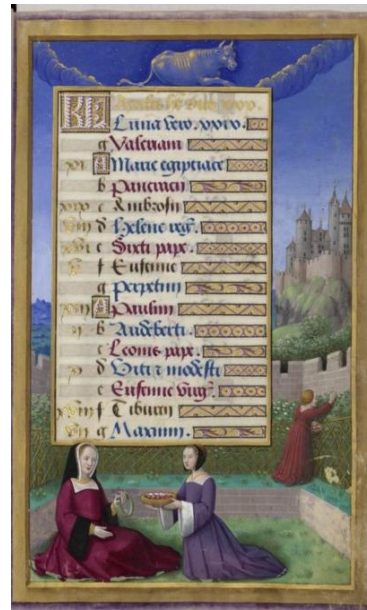 KL
Luna vero. xxix.
g Valeriani
xi A Marie egiptiace
b Pancracii
xix c Ambrosii
viii d Helene reg.
xvi e Sixti pape.
v f Eufemie
g Perpetui
xiii A Paulini
ii b Audeberti.
c Leonis pape.
x d Viti z modesti
e Eufemie virg.
xviii f Tiburcii
vii g Maximi.